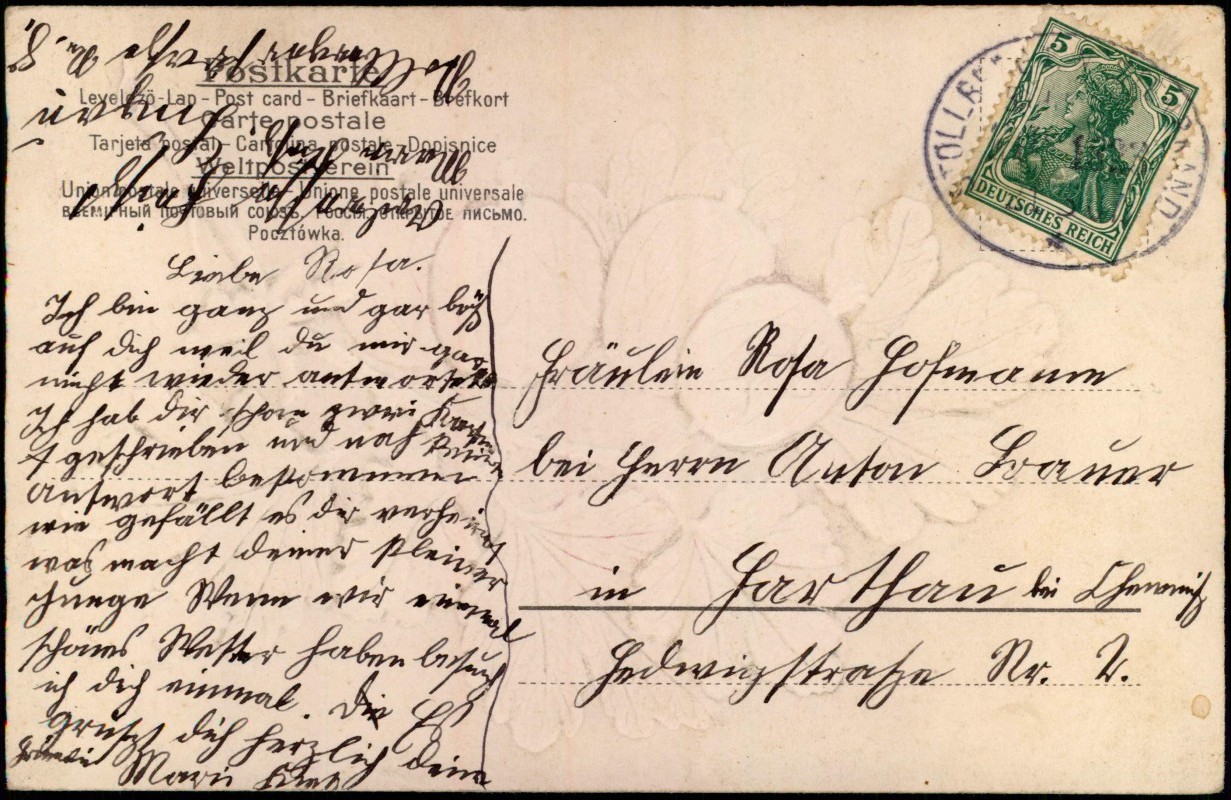 Postkarte
Levelező-Lap – Post card – Briefkaart – Brefkort
Carte postale
Tarjeta postal – Cartolina postale – Dopisnice
Weltpostverein
Union postale universelle – Unione postale universale
ВСЕМІРНЫЙ ПОЧТОВЫЙ СОЮЗЪ. РОССІЯ. ОТКРЫТОЕ ПИСЬМО.
Pocztówka.
Liebe Rosa.
Ich bin ganz und gar böß
auf dich weil du mir gar
nicht wieder antworten
Ich hab dir schon zwei Karten
geschrieben und noch keine
antwort bekommen
wie gefällt es dir verheirat
was macht deiner kleiner
Junge Wenn wir einmal
schönes Wetter haben besuch
ich dich einmal. Die Es
grüßt dich herzlich deine
Marie
5
5
DEUTSCHES REICH
Fräulein Rosa Hofmann
bei Herrn Anton Bauer
in Harthau bei Chemnitz
Hedwigstraße Nr. 2.